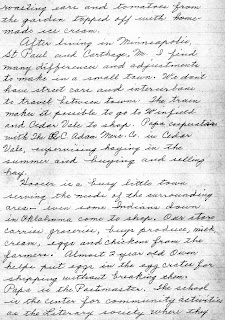 roasting ears and tomatoes from
the garden topped off with home-
made ice cream.
After living in Minneapolis,
St Paul and Carthage, M I find
many differences and adjustments
to make in a small town. We dont
have street cars and interurbans
to travel between towns. The train
makes it possible to go to Winfield
and Cedar Vale to shop. Papa
with The R.C. Adam Merc. Co. in Cedar
Vale, supervising haying in the
summer and buying and selling
hay.
Hooser is a busy little town
serving the needs of the surrounding
area - even some Indians down
in Oklahoma come to shop. Our store
carries groceries, buys produce, milk
cream, eggs and chickens from the
farmers. Almost 2 year old Owen
helps put eggs in the egg crates for
shipping without breaking them.
Papa is the Postmaster. The school
is the center for community activities
as the Literary society where they